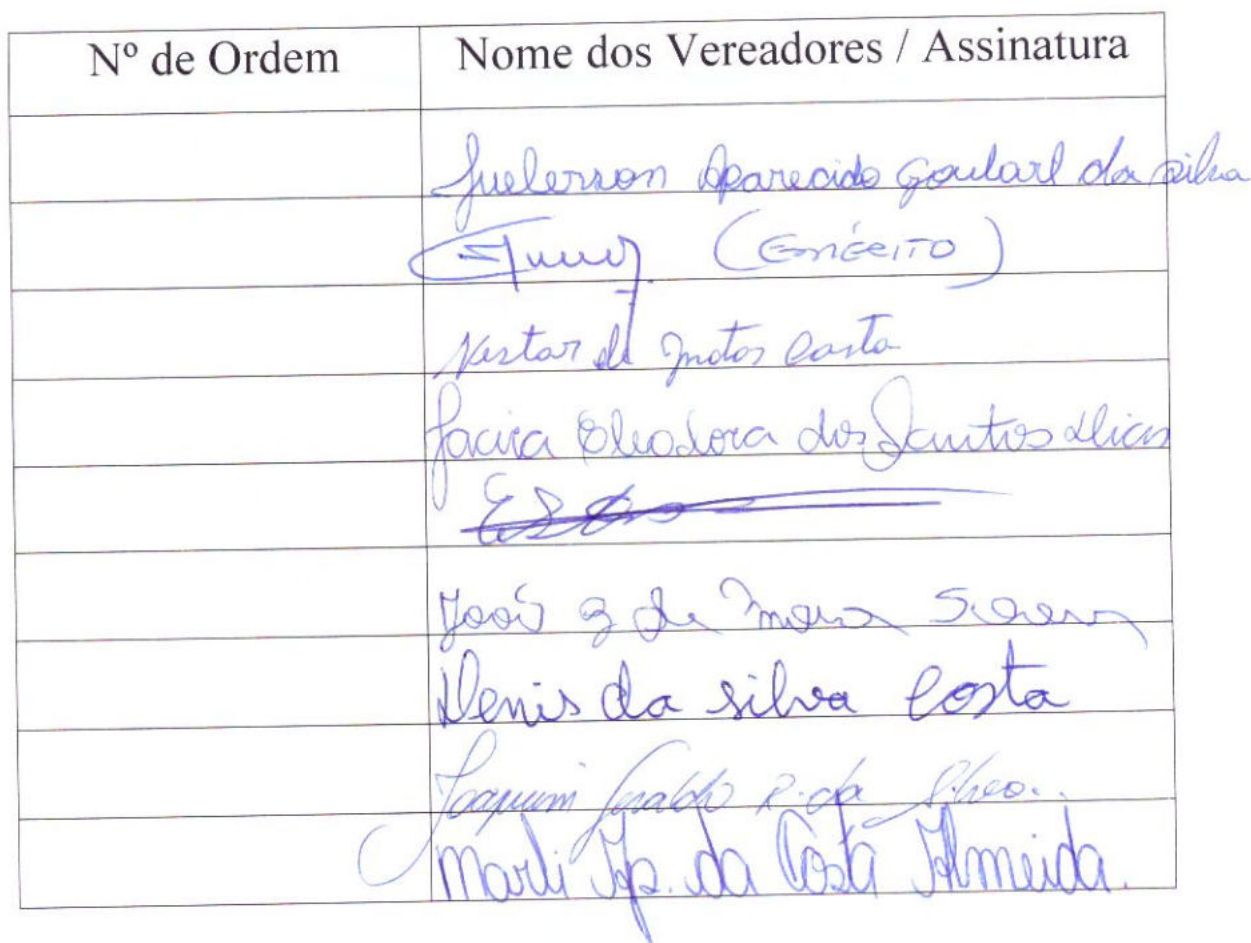 Nº de Ordem Nome dos Vereadores / Assinatura
Juelerson Aparecido Goulart da Silva
(EMÉRITO)
Nestor de Matos Costa
Jacira Eleodora dos Santos Dias
João de
Denis da silva Costa
Joaquim Geraldo R. da Silva.
Marli Ap. da Costa Almeida.